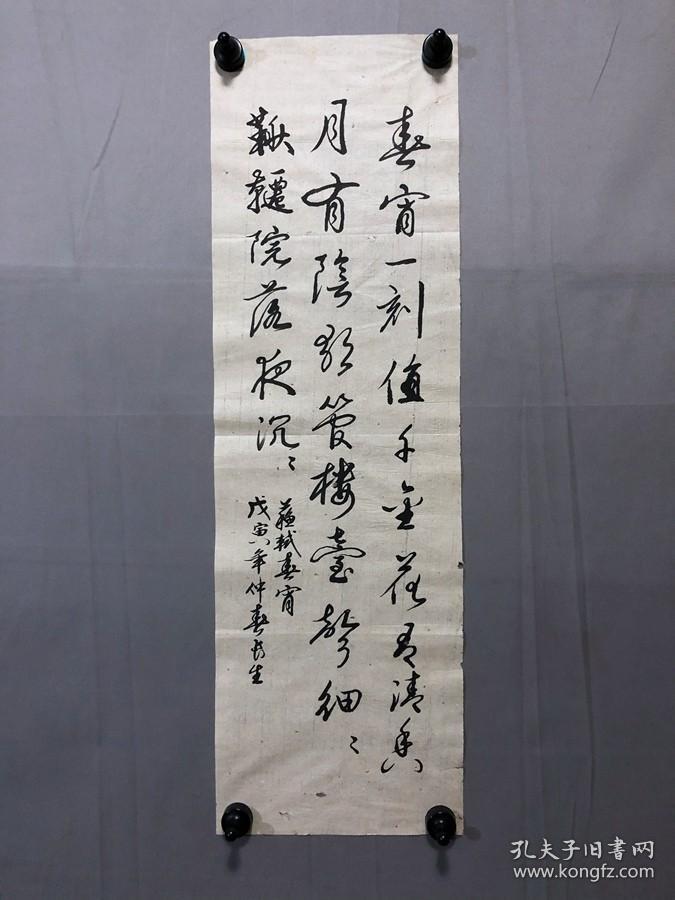 春宵一刻值千金花有清香
月有陰歌管楼臺聲細〻
鞦韆院落夜沉〻
蘇軾春宵
戊寅年仲春长生
孔夫子旧书网
www.kongfz.com